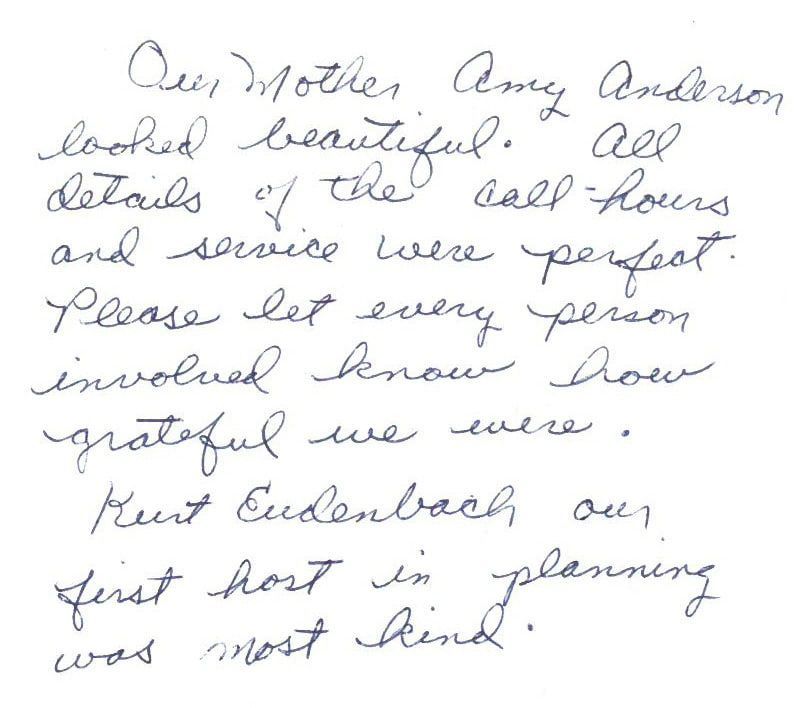 Our Mother Amy Anderson
looked beautiful. All
details of the call-hours
and service were perfect.
Please let every person
involved know how
grateful we were.
Kurt Eudenbach our
first host in planning
was most kind.